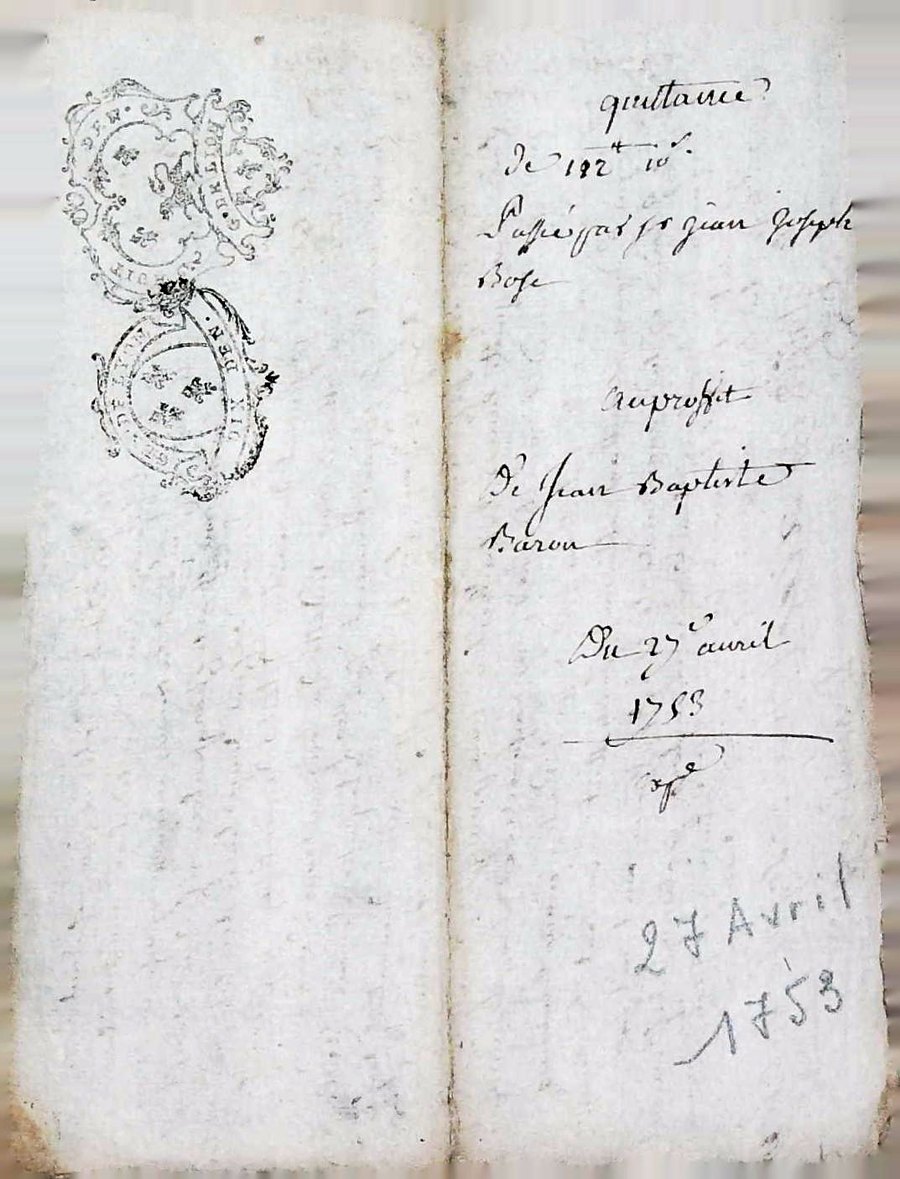 GE. DE LYON
DEN.
quittance
de 112# 10s.
Passée par sr jean Joseph
Bose
au proffit
De Jean Baptiste
Baron
Du 27e avril
1753
27 Avril
1753